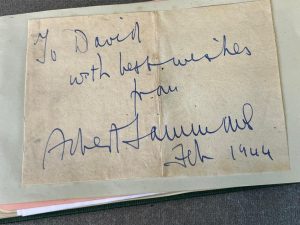 To David
with best wishes
from
Albert Sammons
Feb 1944